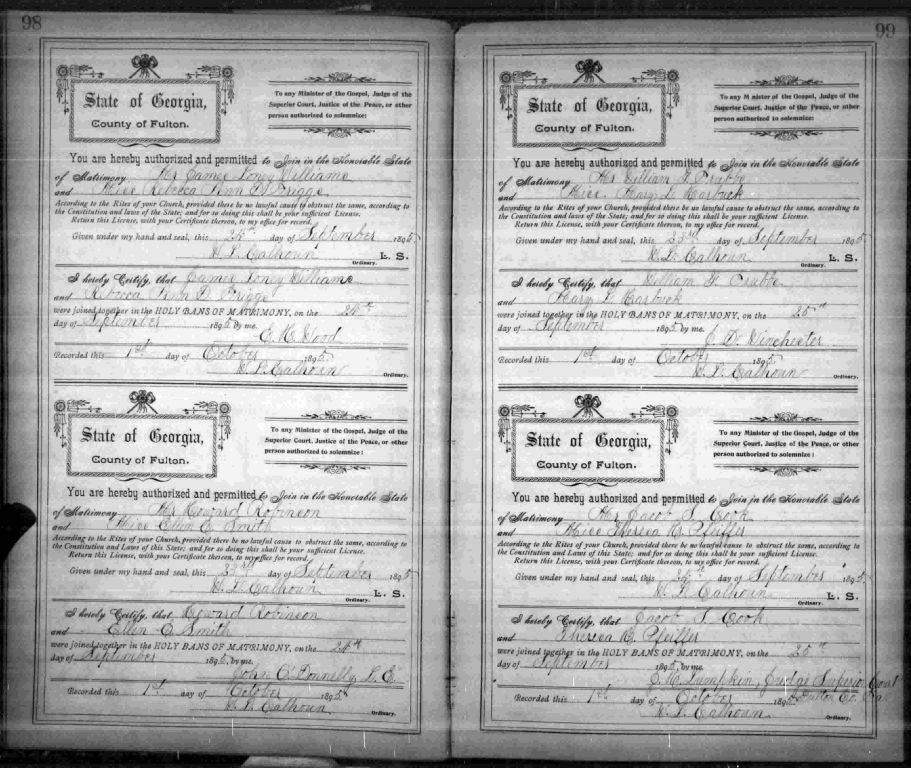 98
State of Georgia,
County of Fulton.
To any Minister of the Gospel, Judge of the
Superior Court, Justice of the Peace, or other
person authorized to solemnize:
You are hereby authorized and permitted to Join in the Honorable State
of Matrimony Mr James Toney Williams
and Miss Rebecca Ann D. Griggs
According to the Rites of your Church, provided there be no lawful cause to obstruct the same, according to
the Constitution and laws of this State; and for so doing this shall be your sufficient License.
Return this License, with your Certificate thereon, to my office for record.
Given under my hand and seal, this day of September 1895
W. L. Calhoun L. S.
Ordinary.
I hereby Certify, that James Toney Williams
and Rebecca Ann D. Griggs
were joined together in the HOLY BANS OF MATRIMONY, on the
day of September 1895 by me.
E. M. Wood
Recorded this 1st day of October 1895
W. L. Calhoun
Ordinary.
State of Georgia,
County of Fulton.
To any Minister of the Gospel, Judge of the
Superior Court, Justice of the Peace, or other
person authorized to solemnize:
You are hereby authorized and permitted to Join in the Honorable State
of Matrimony Mr Edward Robinson
and Miss Ellen E. Smith
According to the Rites of your Church, provided there be no lawful cause to obstruct the same, according to
the Constitution and Laws of this State; and for so doing this shall be your sufficient License.
Return this License, with your Certificate thereon, to my office for record.
Given under my hand and seal, this day of September 1895
W. L. Calhoun L. S.
Ordinary.
I hereby Certify, that Edward Robinson
and Ellen E. Smith
were joined together in the HOLY BANS OF MATRIMONY, on the
day of September 1895, by me.
John O'Donnelly
Recorded this 1st day of October 1895
W. L. Calhoun
Ordinary.
99
State of Georgia,
County of Fulton.
To any Minister of the Gospel, Judge of the
Superior Court, Justice of the Peace, or other
person authorized to solemnize:
You are hereby authorized and permitted to Join in the Honorable State
of Matrimony Mr William F. Crabbe
and Miss Mary L. Marbuck
According to the Rites of your Church, provided there be no lawful cause to obstruct the same, according to
the Constitution and laws of this State; and for so doing this shall be your sufficient License.
Return this License, with your Certificate thereon, to my office for record.
Given under my hand and seal, this day of September 1895
W. L. Calhoun L. S.
Ordinary.
I hereby Certify, that William F. Crabbe
and Mary L. Marbuck
were joined together in the HOLY BANS OF MATRIMONY, on the 25th
day of September 1895 by me.
J. D. Winchester
Recorded this 1st day of October 1895
W. L. Calhoun
Ordinary.
State of Georgia,
County of Fulton.
To any Minister of the Gospel, Judge of the
Superior Court, Justice of the Peace, or other
person authorized to solemnize:
You are hereby authorized and permitted to Join in the Honorable State
of Matrimony Mr Jacob S. Cook
and Miss Theresa C. Pfeiffer
According to the Rites of your Church, provided there be no lawful cause to obstruct the same, according to
the Constitution and laws of this State; and for so doing this shall be your sufficient License.
Return this License, with your Certificate thereon, to my office for record.
Given under my hand and seal, this day of September 1895
W. L. Calhoun L. S.
Ordinary.
I hereby Certify, that Jacob S. Cook
and Theresa C. Pfeiffer
were joined together in the HOLY BANS OF MATRIMONY, on the 25th
day of September 1895, by me.
J. H. Lumpkin, Judge Superior Court
Fulton Co. Ga.
Recorded this 1st day of October 1895
W. L. Calhoun
Ordinary.